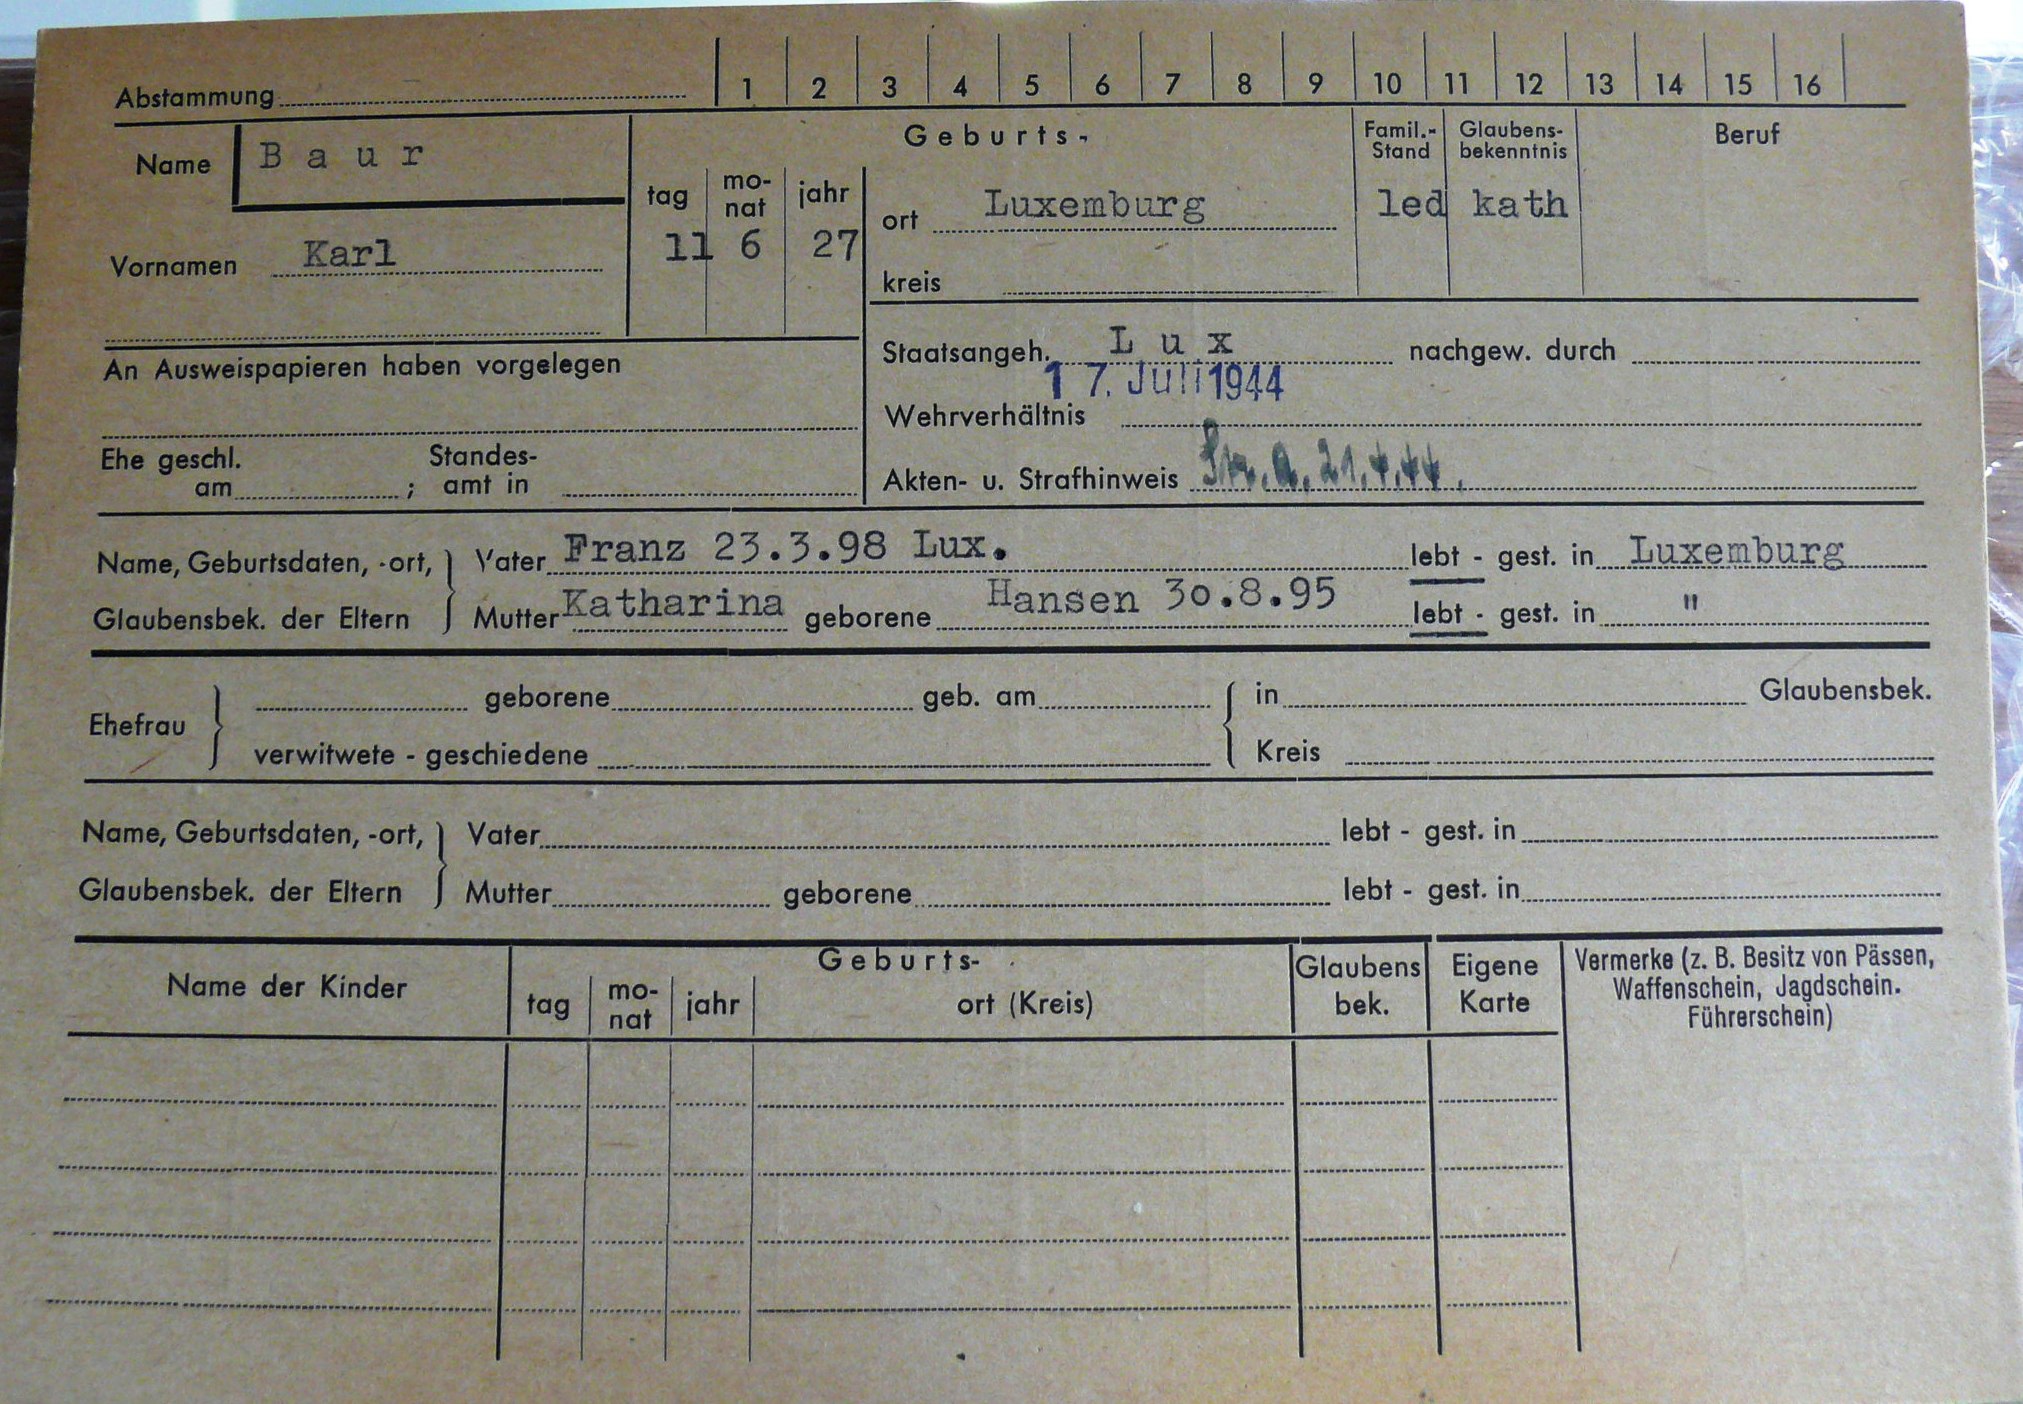 Abstammung 1 2 3 4 5 6 7 8 9 10 11 12 13 14 15 16
Name Baur
Vornamen Karl
Geburts-
tag monat jahr
11 6 27
ort Luxemburg
kreis
Famil.-Stand
led
Glaubensbekenntnis
kath
Beruf
An Ausweispapieren haben vorgelegen
Ehe geschl. am ; Standesamt in
Staatsangeh. Lux nachgew. durch
17. Juli 1944
Wehrverhältnis
Akten- u. Strafhinweis 21.4.44.
Name, Geburtsdaten, -ort, Vater Franz 23.3.98 Lux. lebt - gest. in Luxemburg
Glaubensbek. der Eltern Mutter Katharina geborene Hansen 30.8.95 lebt - gest. in "
Ehefrau geborene geb. am in Glaubensbek.
verwitwete - geschiedene Kreis
Name, Geburtsdaten, -ort, Vater lebt - gest. in
Glaubensbek. der Eltern Mutter geborene lebt - gest. in
Name der Kinder
Geburts-
tag monat jahr ort (Kreis)
Glaubens bek.
Eigene Karte
Vermerke (z. B. Besitz von Pässen,
Waffenschein, Jagdschein.
Führerschein)